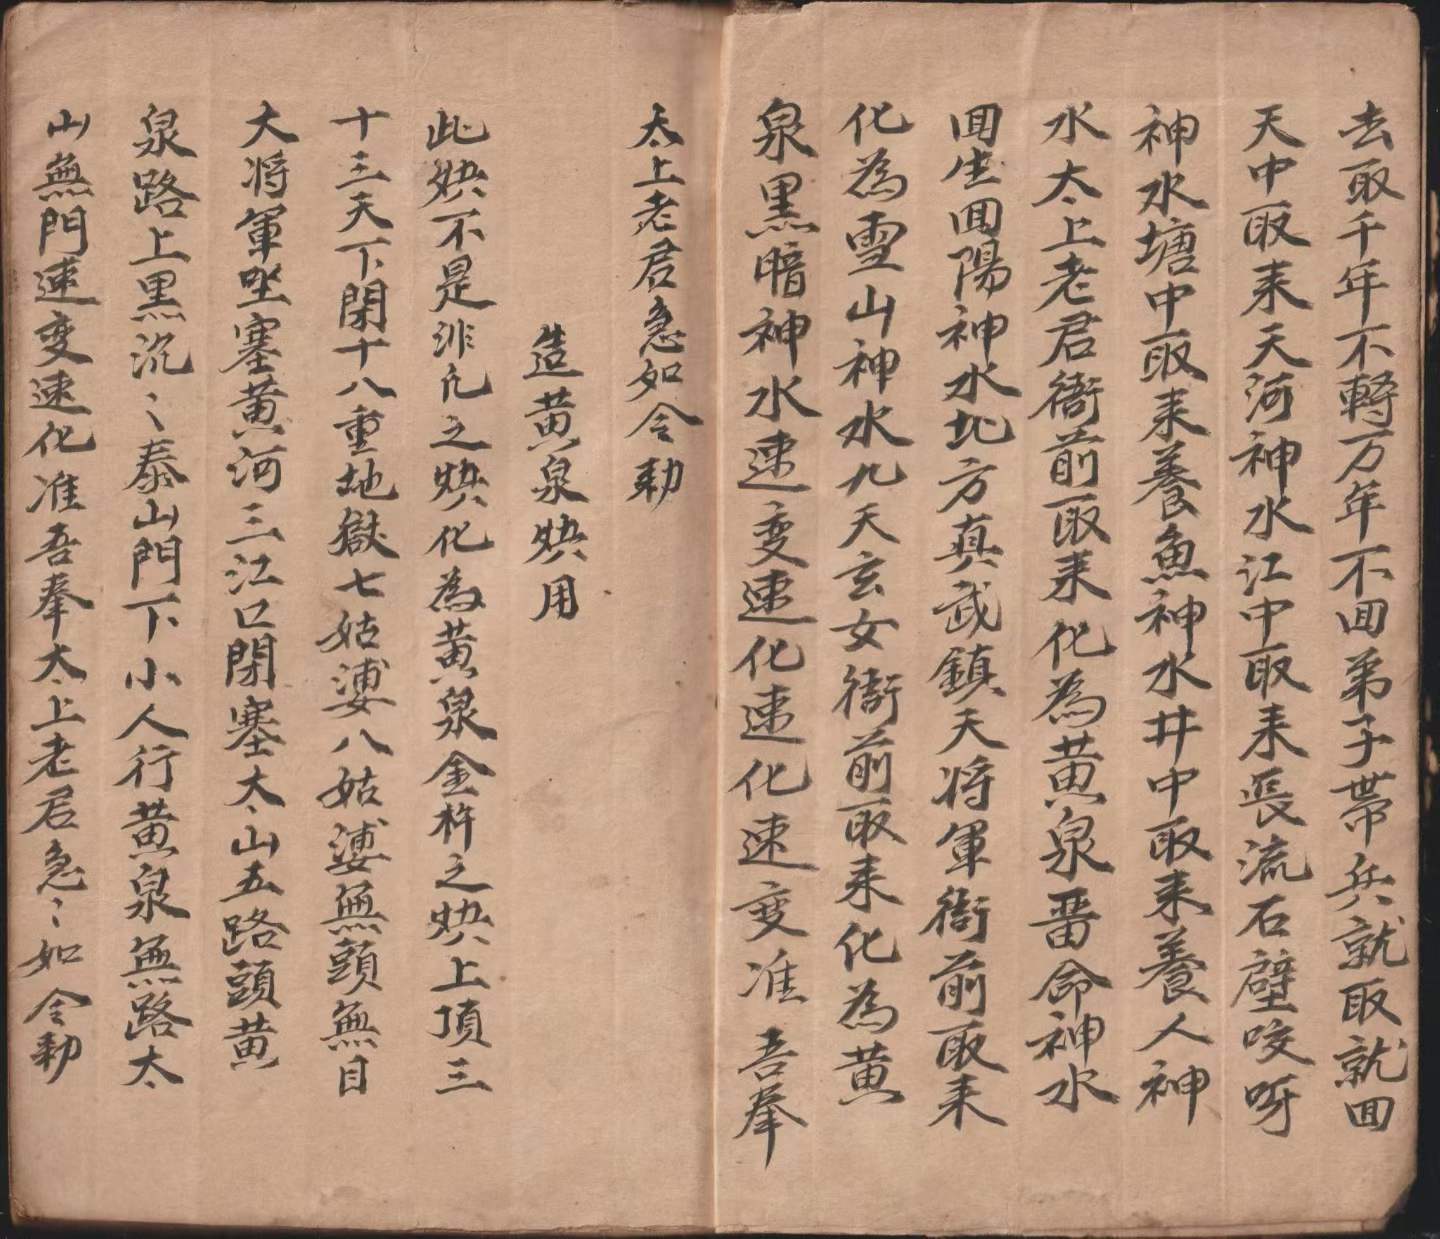 去取千年不轉万年不囬弟子帶兵就取就囬
天中取来天河神水江中取来長流石壁咬呀
神水塘中取来養魚神水井中取来養人神
水太上老君衙前取来化為黄泉番命神水
囬生囬陽神水地方真武鎮天将軍衙前取来
化為雪山神水九天玄女衙前取来化為黄
泉黒暗神水速变速化速化速变准吾奉
太上老君急如令勅
造黄泉炔用
此炔不是非凢之炔化為黄泉金杵之炔上頂三
十三天下閉十八重地獄七姑婆八姑婆無頭無目
大将軍坐塞黄河三江口閉塞太山五路頭黄
泉路上黒沉〻泰山門下小人行黄泉無路太
山無門速变速化准吾奉太上老君急〻如令勅